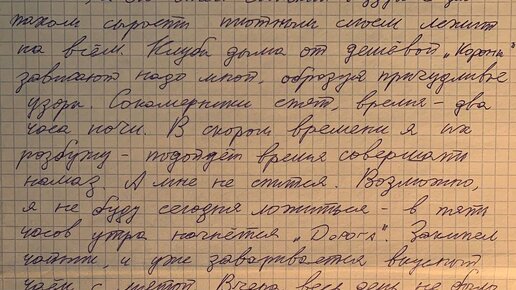 пахом сырости плотным слоем лежит
на всём. Клубы дыма от дешёвой „Короны"
зависают надо мной, образуя причудливые
узоры. Сокамерники спят, время – два
часа ночи. В скором времени я их
разбужу – подойдёт время совершать
намаз. А мне не спится. Возможно,
я не буду сегодня ложиться – в пять
часов утра начнётся „Дорога". Закипел
чайник, и уже заваривается вкусный
чаёк с мятой. Вчера весь день не было